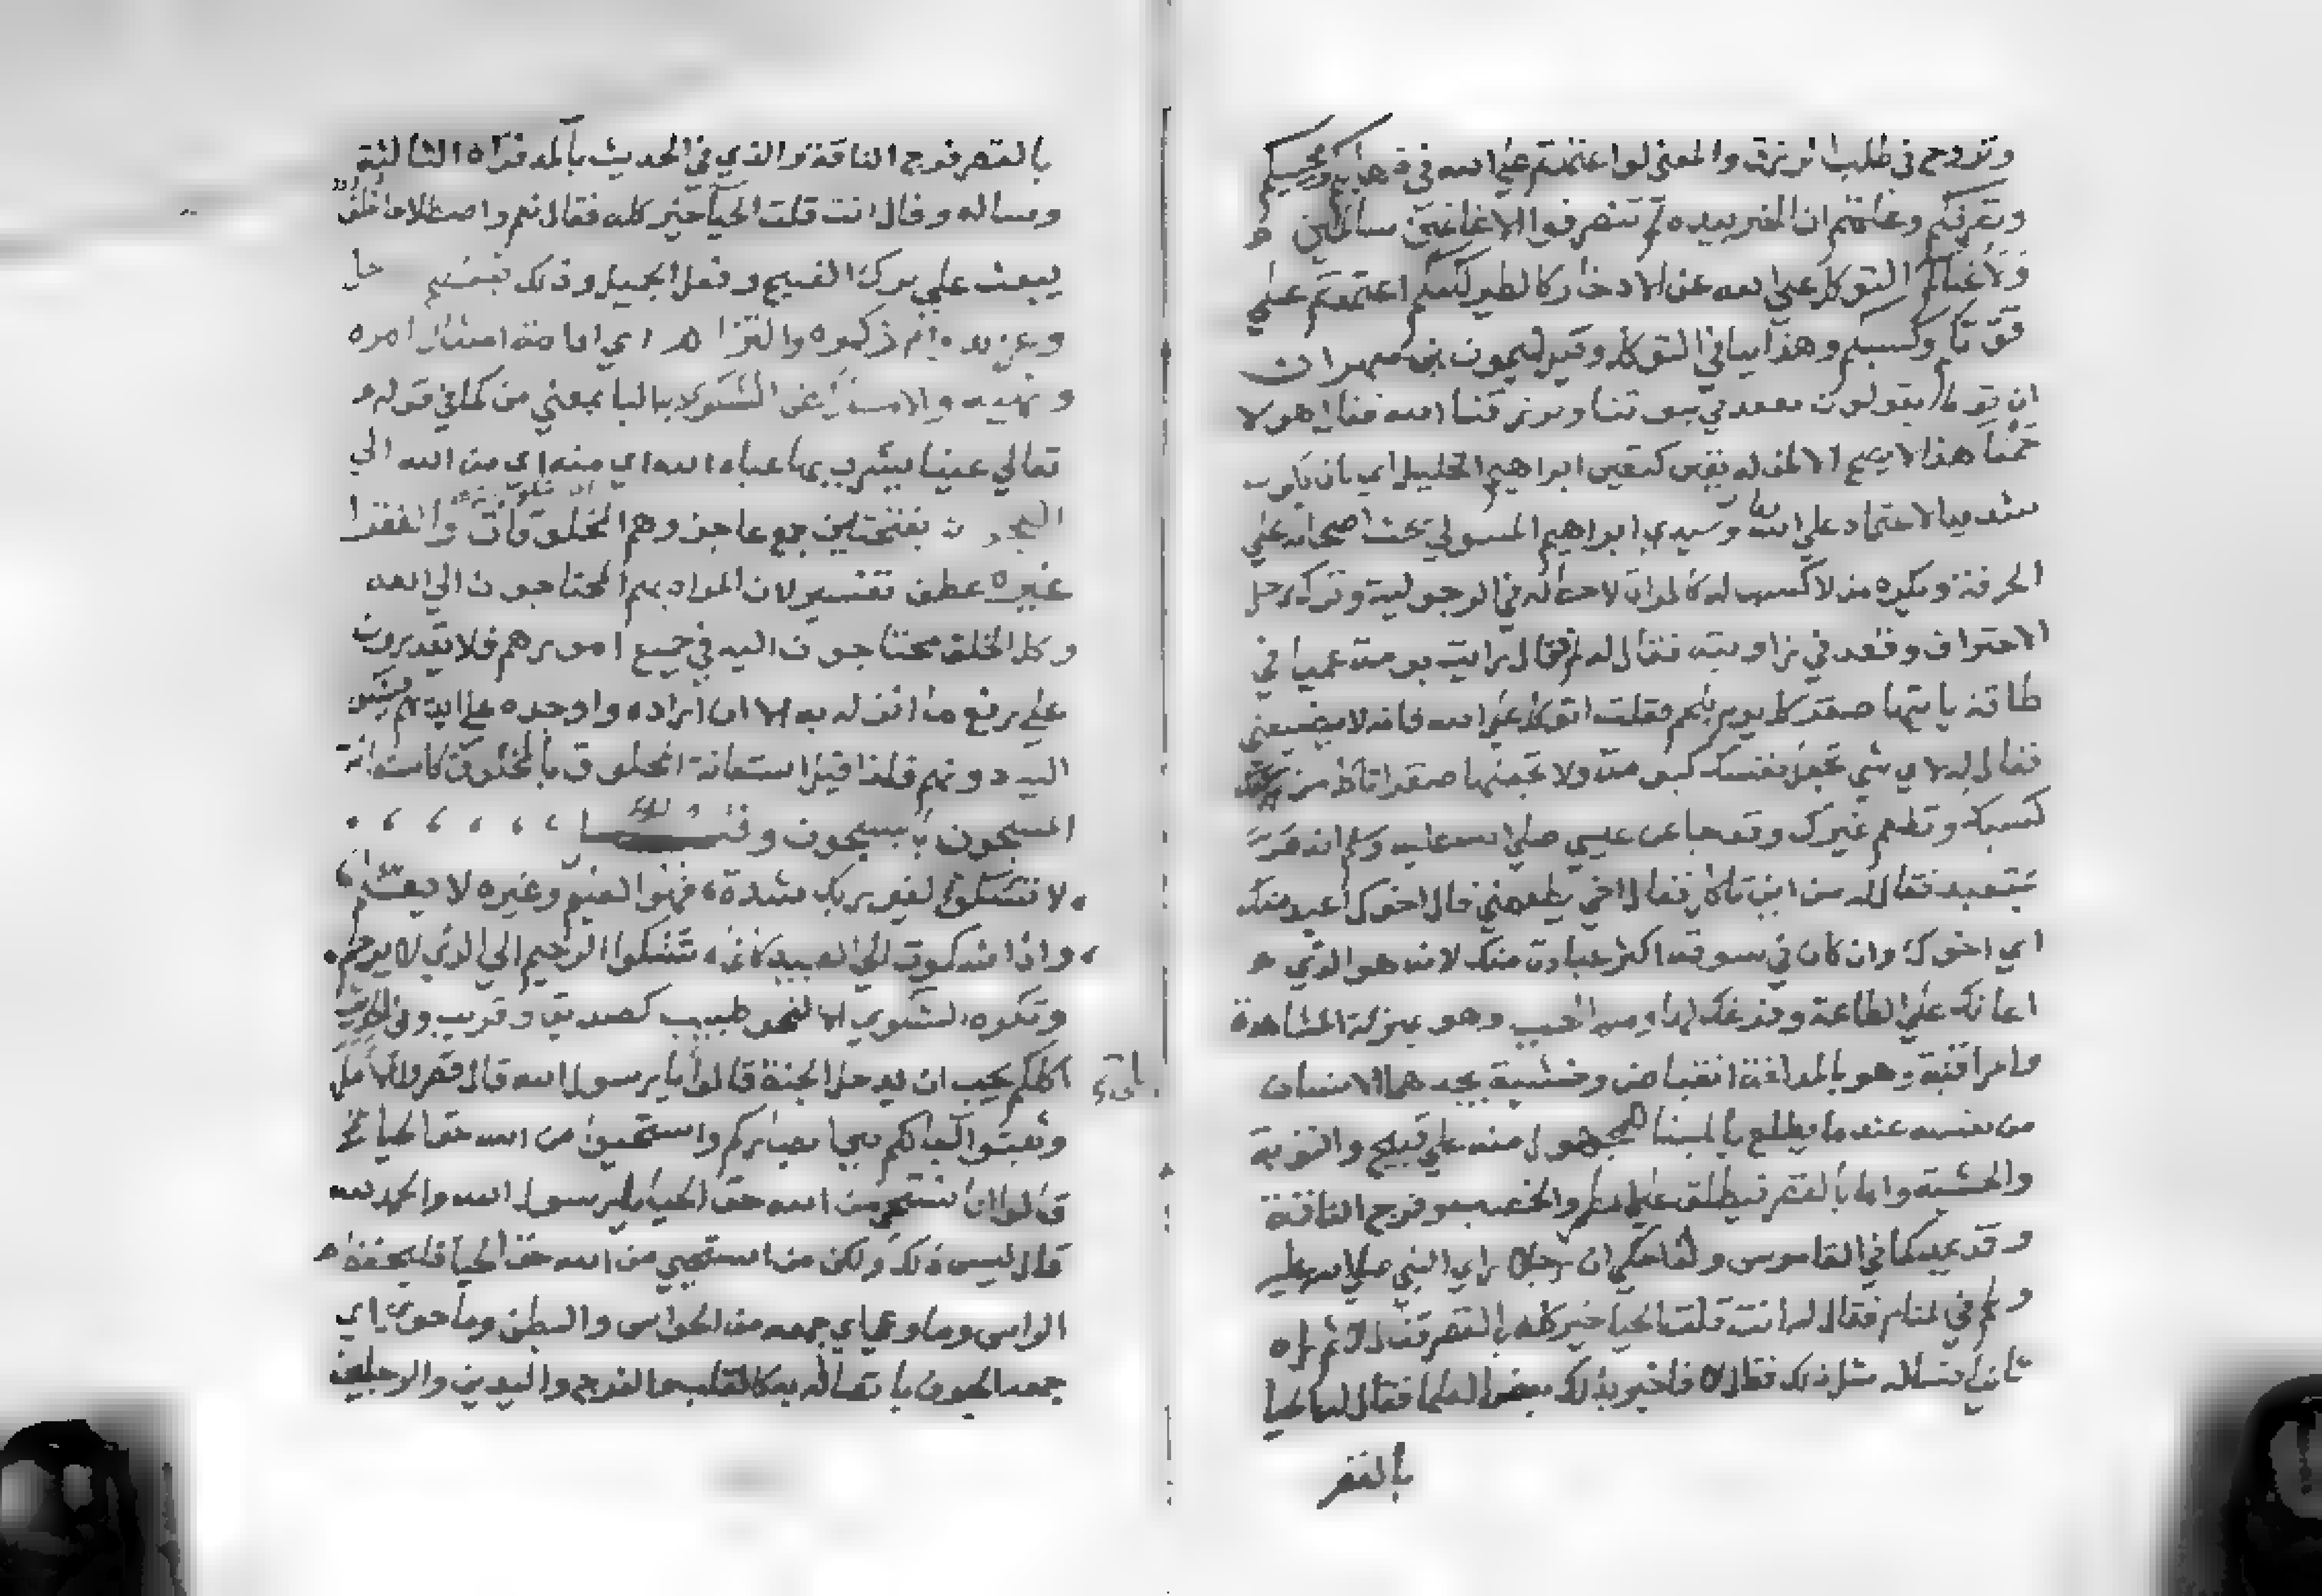 وتروح في طلب الرزق والمعنى لو اعتمدتم على الله في ذهابكم ومجيئكم
وتصرفكم وعلمتم ان الخير بيده لم تنصرفوا الا غانمين سالمين
ولاغناكم التوكل على الله عن الادخار كالطير لكنكم اعتمدتم على
قوتكم وكسبكم وهذا ينافي التوكل وقيل لميمون بن مهران
ان قوما يقولون نقعد في بيوتنا ويرزقنا الله فقال هولا
حمقا هذا لا يصح الا لمن له يقين كيقين ابراهيم الخليل اي بان يكون
شديد الاعتماد على الله وسيدي ابراهيم المتبولي يحث اصحابه على
الحرفة ويكره من لا كسب له كالمراة لا حظ له في الرجولية وترك رجل
الاحتراف وقعد في زاويته فقال له لم فقال رايت بومة عميا في
طاقة ياتيها صقر كل يوم بلحم فقلت اتوكل على الله فانه لا يضيعني
فقال له لاي شي تجعل نفسك كبومة ولا تجعلها صقرا تاكل من
كسبك وتطعم غيرك وقد جا عن عيسى صلى الله عليه وسلم انه مر
بمتعبد فقال له من اين تاكل فقال اخي يطعمني قال اخوك اعبد منك
اي اخوك وان كان في سوقه اكثر عبادة منك لانه هو الذي
اعانك على الطاعة وفرغك لها ومن الحيب وهو بمنزلة المشاهدة
والمراقبة وهو بالمد لغة انقباض وخشية يجدها الانسان
من نفسه عندما يطلع بالبنا للمجهول منه على قبيح والتوبة
والحشمة واما بالقصر فيطلق على المطر والخصب وفرج الناقة
وقد يمد كما في القاموس ولذا حكي ان رجلا راي النبي صلى الله عليه
وسلم في المنام فقال له انت قلت الحيا خير كله بالقصر فقال لا ثم راه
ثانيا فساله مثل ذلك فقال لا فاخبر بذلك بعض العلما فقال له الحيا
بالقصر
بالقصر فرج الناقة والذي في الحديث بالمد فراه الثالثة
وساله وقال انت قلت الحيآ خير كله فقال نعم واصطلاحا خلق
يبعث على ترك القبيح وفعل الجميل
وغيره ذكروه والتزام اي اقامة امتثال امره
ونهيه والامساك عن الشكوى بالبا بمعنى من كما في قوله
تعالى عينا يشرب بها عباد الله اي منه اي من الله الى
العجزة بفتحتين جمع عاجز وهم المخلوقات والفقرا
غيره عطف تفسير لان المراد بهم المحتاجون الى الله
وكل الخلق محتاجون اليه في جميع امورهم فلا يقدرون
على رفع ما انزله به الا ان اراده واوجده على ايديهم فيشكو
اليه دونهم فلذا قيل استعانة المخلوق بالمخلوق كاستعانة
المسجون بالمسجون وقيل
لا تشكون لغير ربك شدة فهو العليم وغيره لا يعلم
واذا شكوت الى العبيد كانما تشكوا الرحيم الى الذي لا يرحم
وتكره الشكوى الا لنحو طبيب كصديق وقريب وفي الحديث
اكلكم يحب ان يدخل الجنة قالوا يا رسول الله قال قصروا الامل
وثبتوا اجالكم بين ابصاركم واستحيوا من الله حق الحيا
قالوا انا نستحي من الله حق الحيا يا رسول الله والحمد لله
قال ليس ذلك ولكن من استحيى من الله حق الحيا فليحفظ
الراس وما وعى اي جمعه من الحواس والبطن وما حوى اي
جمعه الجوف باتصاله به كالقلب والفرج واليدين والرجلين